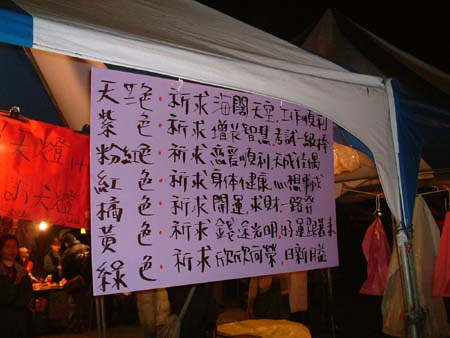 天燈
小天燈
天藍色·祈求海闊天空,工作順利
紫 色·祈求增長智慧,考試一級棒
粉紅色·祈求戀愛順利,天成佳偶
紅 色·祈求身体健康,心想事成
橘 色·祈求開運,求財一路發
黃 色·祈求錢途光明,好運跟着來
綠 色·祈求欣欣向榮,日新日益